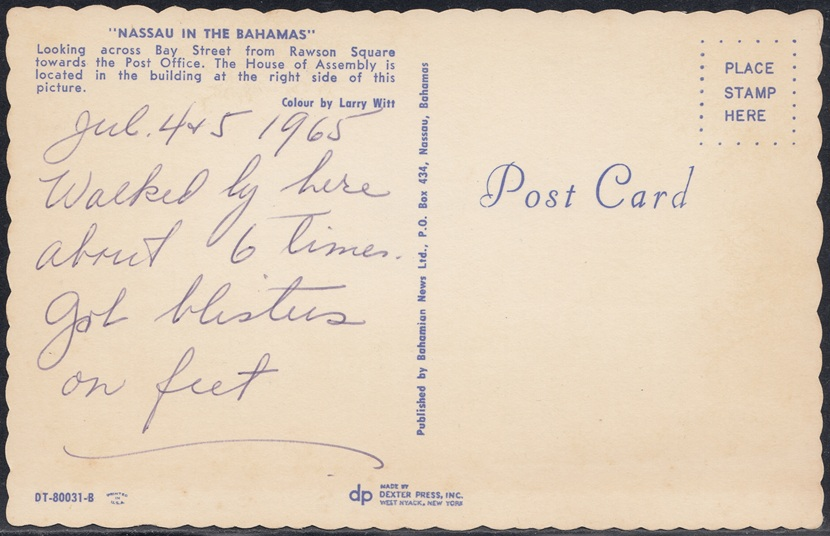 "NASSAU IN THE BAHAMAS"
Looking across Bay Street from Rawson Square
towards the Post Office. The House of Assembly is
located in the building at the right side of this
picture.
Colour by Larry Witt
Jul. 4+5 1965
Walked by here
about 6 times.
Got blisters
on feet
DT-80031-B
PRINTED
IN
U.S.A.
Published by Bahamian News Ltd., P.O. Box 434, Nassau, Bahamas
dp
MADE BY
DEXTER PRESS, INC.
WEST NYACK, NEW YORK
Post Card
PLACE
STAMP
HERE